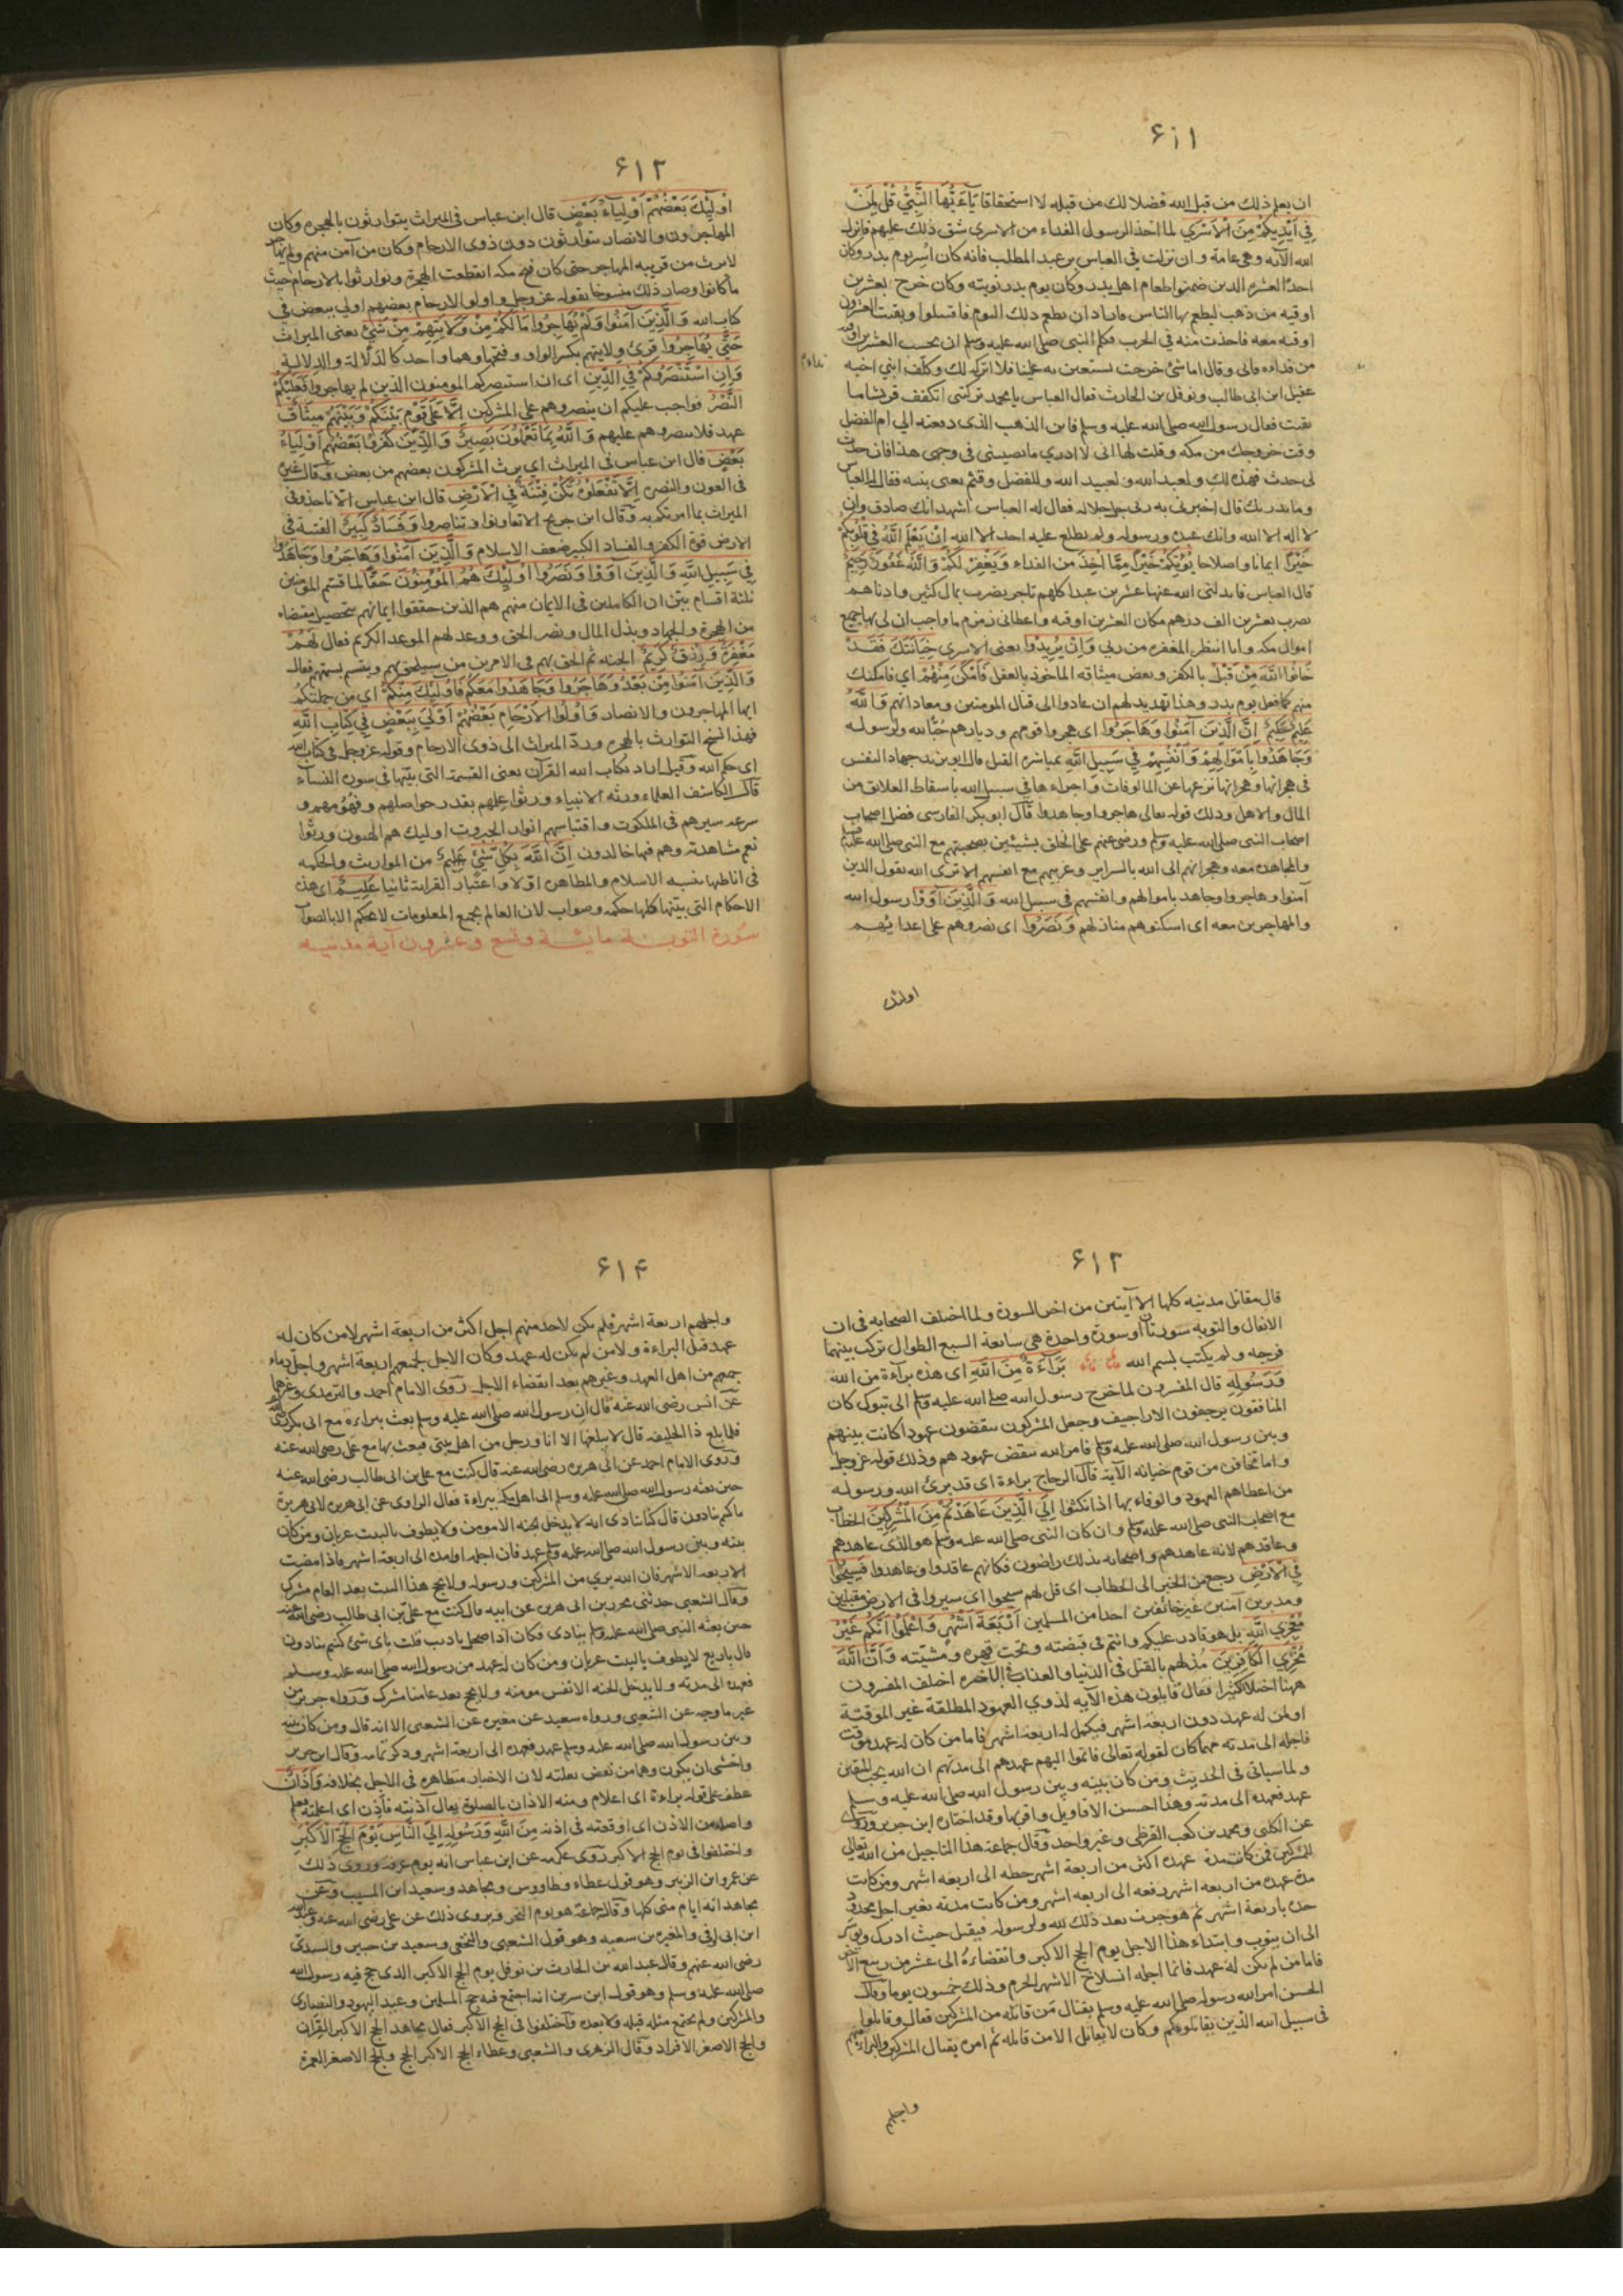 ۶۱۱
ان يعلم ذلك من قبل الله فضلا لك من قبله لا استحقاقا يَآءَيُّهَا النَّبِيُّ قُلْ لِمَنْ
فِي اَيْدِيكُمْ مِنَ الْاَسْرَي لما اخذ الرسول الفداء من الاسرى شق ذلك عليهم فانزل
الله الآية وهى عامة وان نزلت في العباس بن عبد المطلب فانه كان اسر يوم بدر وكان
احد العشرة الدين ضمنوا طعام اهل بدر وكان يوم بدر نوبته وكان خرج بعشرين
اوقيه من ذهب ليطعم بها الناس فاراد ان يطعم ذلك اليوم فاقتتلوا وبقيت العشرون
اوقيه معه فاخذت منه في الحرب فكلم النبي صلى الله عليه وسلم ان يحسب العشرين اوقيه
من فداءه فابى وقال اما شئ خرجت تستعين به علينا فلا اتركه لك وكلف ابنى اخيه
عقيل ابن ابى طالب ونوفل بن الحارث فقال العباس يا محمد تركتنى اتكفف قريشا ما
بقيت فقال رسول الله صلى الله عليه وسلم فاين الذهب الذى دفعته الي ام الفضل
وقت خروجك من مكه وقلت لها انى لا ادري ما يصيبنى في وجهى هذا فان حدث
لى حدث فهذه لك ولعبد الله ولعبيد الله وللفضل وقثم يعنى بنيه فقال له العباس
وما يدريك قال اخبرنى به ربى جل جلاله فقال له العباس اشهد انك صادق وان
لا اله الا الله وانك عبده ورسوله ولم يطلع عليه احد الا الله اِنْ يَعْلَمِ اللَّهُ فِي قُلُوبِكُمْ
خَيْرًا ايمانا واصلاحا يُؤْتِكُمْ خَيْرًا مِمَّا اُخِذَ من الفداء وَيَغْفِرْ لَكُمْ وَاللَّهُ غَفُورٌ رَحِيمٌ
قال العباس فابدلنى الله عنها عشرين عبدا كلهم تاجر يضرب بمال كثير وادناهم
يضرب بعشرين الف درهم مكان العشرين اوقيه واعطانى زمزم ما واجب ان لى بها جميع
اموال مكه وانا انتظر المغفره من ربي وَاِنْ يُرِيدُوا يعنى الاسرى خِيَانَتَكَ فَقَدْ
خَانُوا اللَّهَ مِنْ قَبْلُ بالكفر وبعض ميثاقه الماخوذ بالعقل فَاَمْكَنَ مِنْهُمْ اى فامكنك
منهم كما فعل يوم بدر وهذا تهديد لهم ان عادوا الى قتال المومنين ومعاداتهم وَاللَّهُ
عَلِيمٌ حَكِيمٌ اِنَّ الَّذِينَ اٰمَنُوا وَهَاجَرُوا اى هجروا قومهم وديارهم حُبًّا لله ولرسوله
وَجَاهَدُوا بِاَمْوَالِهِمْ وَاَنْفُسِهِمْ فِي سَبِيلِ اللَّهِ بمباشرة القتل قال ابو يزيد جهاد النفس
في هجرانها وهجرانها نزعها عن المالوفات واجراءها في سبيل الله باسقاط العلائق من
المال والاهل وذلك قوله تعالى هاجروا وجاهدوا قال ابو بكر الفارسى فضل اصحاب
اصحاب النبى صلى الله عليه وسلم ورضى عنهم على الخلق بشيئين بصحبتهم مع النبى صلى الله عليه
والمجاهده معه وهجرانهم الى الله بالسراير وغربتهم مع انفسهم الا ترى الله يقول الذين
آمنوا وهاجروا وجاهدوا باموالهم وانفسهم في سبيل الله وَالَّذِينَ آوَوْا رسول الله
والمهاجرين معه اى اسكنوهم منازلهم وَنَصَرُوا اى نصروهم على اعدائهم
اولئك
۶۱۲
اُولَئِكَ بَعْضُهُمْ اَوْلِيَآءُ بَعْضٍ قال ابن عباس في الميراث يتوارثون بالهجره وكان
المهاجرون والانصار يتوارثون دون ذوى الارحام وكان من آمن منهم ولم يهاجر
لا يرث من قريبه المهاجر حتى كان فتح مكه انقطعت الهجرة وتوارثوا بالارحام حيث
ما كانوا وصار ذلك منسوخا بقوله عز وجل واولو الارحام بعضهم اولى ببعض في
كتاب الله وَالَّذِينَ آمَنُوا وَلَمْ يُهَاجِرُوا مَا لَكُمْ مِنْ وَلَايَتِهِمْ مِنْ شَيْءٍ يعنى الميراث
حَتَّى يُهَاجِرُوا قرئ ولايتهم بكسر الواو وفتحها وهما واحد كالدَلالة والدِلالة
وَاِنِ اسْتَنْصَرُوكُمْ فِي الدِّينِ اى ان استنصركم المومنون الذين لم يهاجروا فَعَلَيْكُمُ
النَّصْرُ فواجب عليكم ان ينصروهم على المشركين اِلَّا عَلَى قَوْمٍ بَيْنَكُمْ وَبَيْنَهُمْ مِيثَاقٌ
عهد فلا تنصروهم عليهم وَاللَّهُ بِمَا تَعْمَلُونَ بَصِيرٌ وَالَّذِينَ كَفَرُوا بَعْضُهُمْ اَوْلِيَاءُ
بَعْضٍ قال ابن عباس في الميراث اي يرث المشركون بعضهم من بعض وقال غيره
في العون والنصره اِلَّا تَفْعَلُوهُ تَكُنْ فِتْنَةٌ فِي الْاَرْضِ قال ابن عباس الا تاخذوا في
الميراث بما امرتكم به وقال ابن جريج الا تعاونوا وتناصروا وَفَسَادٌ كَبِيرٌ الفتنة في
الارض قوة الكفر والفساد الكبير ضعف الاسلام وَالَّذِينَ آمَنُوا وَهَاجَرُوا وَجَاهَدُوا
فِي سَبِيلِ اللَّهِ وَالَّذِينَ آوَوْا وَنَصَرُوا اُولَئِكَ هُمُ الْمُؤْمِنُونَ حَقًّا لما قسم المومنين
ثلثة اقسام بين ان الكاملين في الايمان منهم هم الذين حققوا ايمانهم بتحصيل مقتضاه
من الهجرة والجهاد وبذل المال ونصر الحق ووعد لهم الموعد الكريم فقال لَهُمْ
مَغْفِرَةٌ وَرِزْقٌ كَرِيمٌ الجنه ثم الحق بهم في الامرين من سيلحق بهم ويتسم بسمتهم فقال
وَالَّذِينَ آمَنُوا مِنْ بَعْدُ وَهَاجَرُوا وَجَاهَدُوا مَعَكُمْ فَاُولَئِكَ مِنْكُمْ اى من جملتكم
ايها المهاجرون والانصار وَاُولُوا الْاَرْحَامِ بَعْضُهُمْ اَوْلَى بِبَعْضٍ فِي كِتَابِ اللَّهِ
فهذا نسخ التوارث بالهجره وردّ الميراث الى ذوى الارحام وقوله عز وجل في كتاب الله
اى حكم الله وقيل اراد بكتاب الله القرآن يعنى القسمة التى بيّنها في سورة النساء
قال الكاشف العلماء ورثه الانبياء ورثوا علمهم بقدر حواصلهم وفهومهم و
سرعه سيرهم في الملكوت واقتباسهم انوار الجبروت اوليك هم الوارثون ورثوا
نعم مشاهدته وهم فيها خالدون اِنَّ اللَّهَ بِكُلِّ شَيْءٍ عَلِيمٌ من المواريث والحكمه
في اناطتها بنسبه الاسلام والمظاهره اولا واعتبار القرابة ثانيا عَلِيمٌ اى هذه
الاحكام التى بيّنها كلها حكمه وصواب لان العالم بجميع المعلومات لا يحكم الا بالصواب
سورة التوبة مايئة وتسع وعشرون آية مدنيه
۶۱۳
قال مقاتل مدنيه كلها الا آيتين من اخر السورة ولما اختلف الصحابه في ان
الانفال والتوبه سورتان او سورة واحدة هى سابعة السبع الطوال ترك بينهما
فرجه ولم يكتب لبسم الله بَرَآءَةٌ مِنَ اللَّهِ اى هذه براءة من الله
وَرَسُولِهِ قال المفسرون لما خرج رسول الله صلى الله عليه وسلم الى تبوك كان
المنافقون يرجفون الاراجيف وجعل المشركون ينقضون عهودا كانت بينهم
وبين رسول الله صلى الله عليه وسلم فامر الله بنقض عهودهم وذلك قوله عز وجل
واما تخافن من قوم خيانه الآية قال الزجاج براءة اى قد برئ الله ورسوله
من اعطائهم العهود والوفاء بها اذا نكثوا اِلَي الَّذِينَ عَاهَدْتُمْ مِنَ الْمُشْرِكِينَ الخطاب
مع اصحاب النبى صلى الله عليه وسلم وان كان النبى صلى الله عليه وسلم هو الذى عاهدهم
وعاقدهم لانه عاهدهم واصحابه بذلك راضون فكانهم عاقدوا وعاهدوا فَسِيحُوا
فِي الْاَرْضِ رجع من الخبر الى الخطاب اى قل لهم سيحوا اى سيروا في الارض مقبلين
ومدبرين آمنين غير خائفين احدا من المسلمين اَرْبَعَةَ اَشْهُرٍ وَاعْلَمُوا اَنَّكُمْ غَيْرُ
مُعْجِزِي اللَّهِ بل هو قادر عليكم وانتم في قبضته وتحت قهره ومشيّته وَاَنَّ اللَّهَ
مُخْزِي الْكَافِرِينَ مذلهم بالقتل في الدنيا والعذاب في الآخره اختلف المفسرون
ههنا اختلافا كثيرا فقال قايلون هذه الآيه لذوي العهود المطلقة غير الموقتة
او لمن له عهد دون اربعة اشهر فيكمل له اربعة اشهر فاما من كان له عهد موقت
فاجله الى مدته مهما كان لقوله تعالى فاتموا اليهم عهدهم الى مدتهم ان الله يحب المتقين
ولما سياتى في الحديث ومن كان بينه وبين رسول الله صلى الله عليه وسلم
عهد فعهده الى مدته وهذا احسن الاقاويل واقواها وقد اختاره ابن جرير وروى
عن الكلبى ومحمد بن كعب القرظى وغير واحد وقال جماعة هذا التاجيل من الله تعالى
للمشركين فمن كانت مدة عهده اكثر من اربعة اشهر حطه الى اربعه اشهر ومن كانت
مدة عهده من اربعة اشهر رفعه الى اربعه اشهر ومن كانت مدته بغير اجل محدود
حده باربعة اشهر ثم هو حرب بعد ذلك لله ولرسوله فيقتل حيث ادرك ويوسر
الى ان يتوب وابتداء هذا الاجل يوم الحج الاكبر وانقضاءهُ الى عشر من ربيع الآخر
فاما من لم يكن له عهد فانما اجله انسلاخ الاشهر الحرم وذلك خمسون يوما وقال
الحسن امر الله رسوله صلى الله عليه وسلم بقتال مَن قاتله من المشركين فقال وقاتلوا
في سبيل الله الّذين يقاتلونكم وكان لا يقاتل الا من قاتله ثم امره بقتال المشركين والبراءة منهم
واجلهم
۶۱۴
واجلهم اربعة اشهر فلم يكن لاحد منهم اجل اكثر من اربعة اشهر لا من كان له
عهد قبل البراءة ولا من لم يكن له عهد وكان الاجل لجميعهم اربعة اشهر واحل دماء
جميعهم من اهل العهد وغيرهم بعد انقضاء الاجل روى الامام احمد والترمذى وغيرهما
عن انس رضى الله عنه قال ان رسول الله صلى الله عليه وسلم بعث ببراءة مع ابى بكر
فلما بلغ ذا الحليفه قال لا يبلغها الا انا ورجل من اهل بيتى فبعث بها مع على رضى الله عنه
وروى الامام احمد عن ابى هريره رضى الله عنه قال كنت مع على بن ابى طالب رضى الله عنه
حين بعثه رسول الله صلى الله عليه وسلم الى اهل مكه ببراءة فقال الراوى عن ابى هريره لابى هريرة
ما كنتم تنادون قال كنا ننادى انه لا يدخل الجنه الا مومن ولا يطوف بالبيت عريان ومن كان
بينه وبين رسول الله صلى الله عليه وسلم عهد فان اجله او امده الى اربعة اشهر فاذا مضت
الاربعه الاشهر فان الله بري من المشركين ورسوله ولا يحج هذا البيت بعد العام مشرك
وقال الشعبى حدثنى محرر بن ابى هريره عن ابيه قال كنت مع علىّ بن ابى طالب رضى الله عنه
حين بعثه النبى صلى الله عليه وسلم ينادى فكان اذا صحل ناديت قلت باى شئ كنتم تنادون
قال باربع لا يطوف بالبيت عريان ومن كان له عهد من رسول الله صلى الله عليه وسلم
فعهده الى مدته ولا يدخل الجنه الا نفس مومنه ولا يحج بعد عامنا مشرك ورواه جرير من
غير ما وجه عن الشعبى ورواه سعيد عن مغيره عن الشعبى الا انه قال ومن كان بينه
وبين رسول الله صلى الله عليه وسلم عهد فعهده الى اربعة اشهر وذكر تمامه وقال ابن جرير
واخشى ان يكون وهما من بعض نقلته لان الاخبار متظاهره في الاجل بخلافه وَاَذَانٌ
عطف على قوله براءة اى اعلام ومنه الاذان بالصلوة يقال آذنته فاَذِن اى اعلمته فعلم
واصله من الاذن اى اوقعته في اذنه مِنَ اللَّهِ وَرَسُولِهِ اِلَى النَّاسِ يَوْمَ الْحَجِّ الْاَكْبَرِ
واختلفوا فى يوم الحج الاكبر روى عكرمه عن ابن عباس انه يوم عرفه وروى ذلك
عن عمر وابن الزبير وهو قول عطاء وطاووس ومجاهد وسعيد ابن المسيب وعن
مجاهد انه ايام منى كلها وقال جماعة هو يوم النحر ويروى ذلك عن على رضى الله عنه وعبد الله
ابن ابى اوفى والمغيره بن سعبه وهو قول الشعبى والنخعى وسعيد بن جبير والسدى
رضى الله عنهم وقال عبد الله بن الحارث بن نوفل يوم الحج الاكبر الذى حج فيه رسول الله
صلى الله عليه وسلم وهو قول ابن سرين انه اجتمع فيه حج المسلمين وعيد اليهود والنصارى
والمشركين ولم يجتمع مثله قبله ولا بعده واختلفوا فى الحج الاكبر فقال مجاهد الحج الاكبر القران
والحج الاصغر الافراد وقال الزهرى والشعبى وعطاء الحج الاكبر الحج والحج الاصغر العمرة